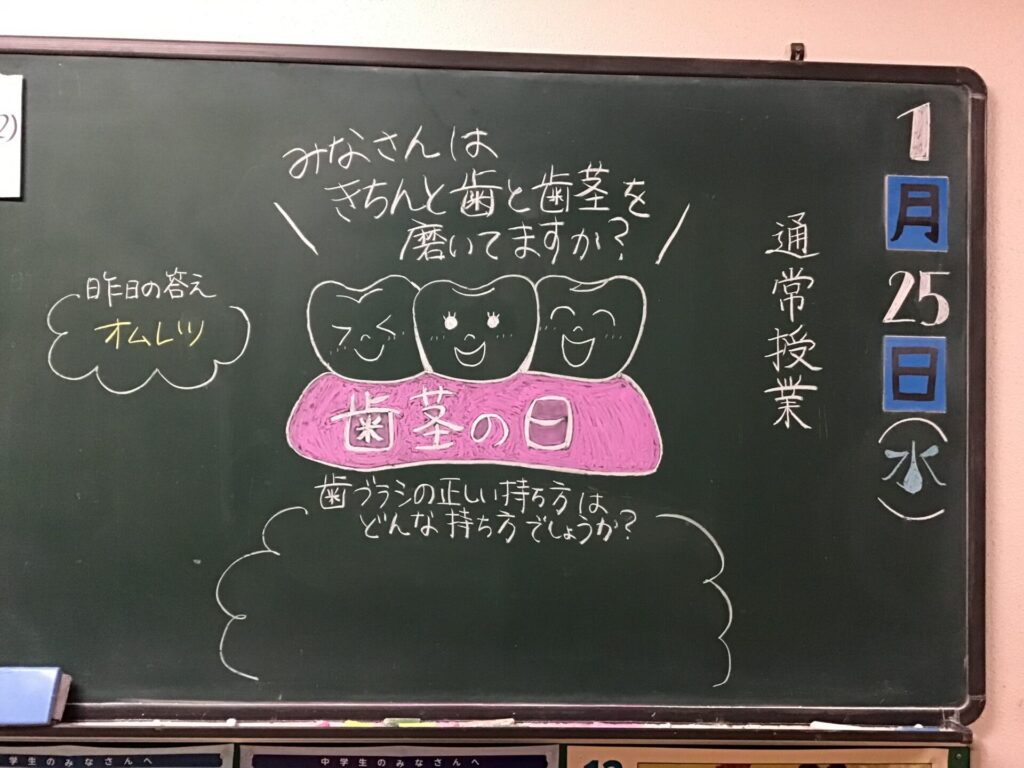 1月25日(水)
通常授業
みなさんは
きちんと歯と歯茎を
磨いてますか?
歯茎の日
歯ブラシの正しい持ち方は
どんな持ち方でしょうか?
昨日の答え
オムレツ
2)
学生のみなさんへ
中学生のみなさんへ